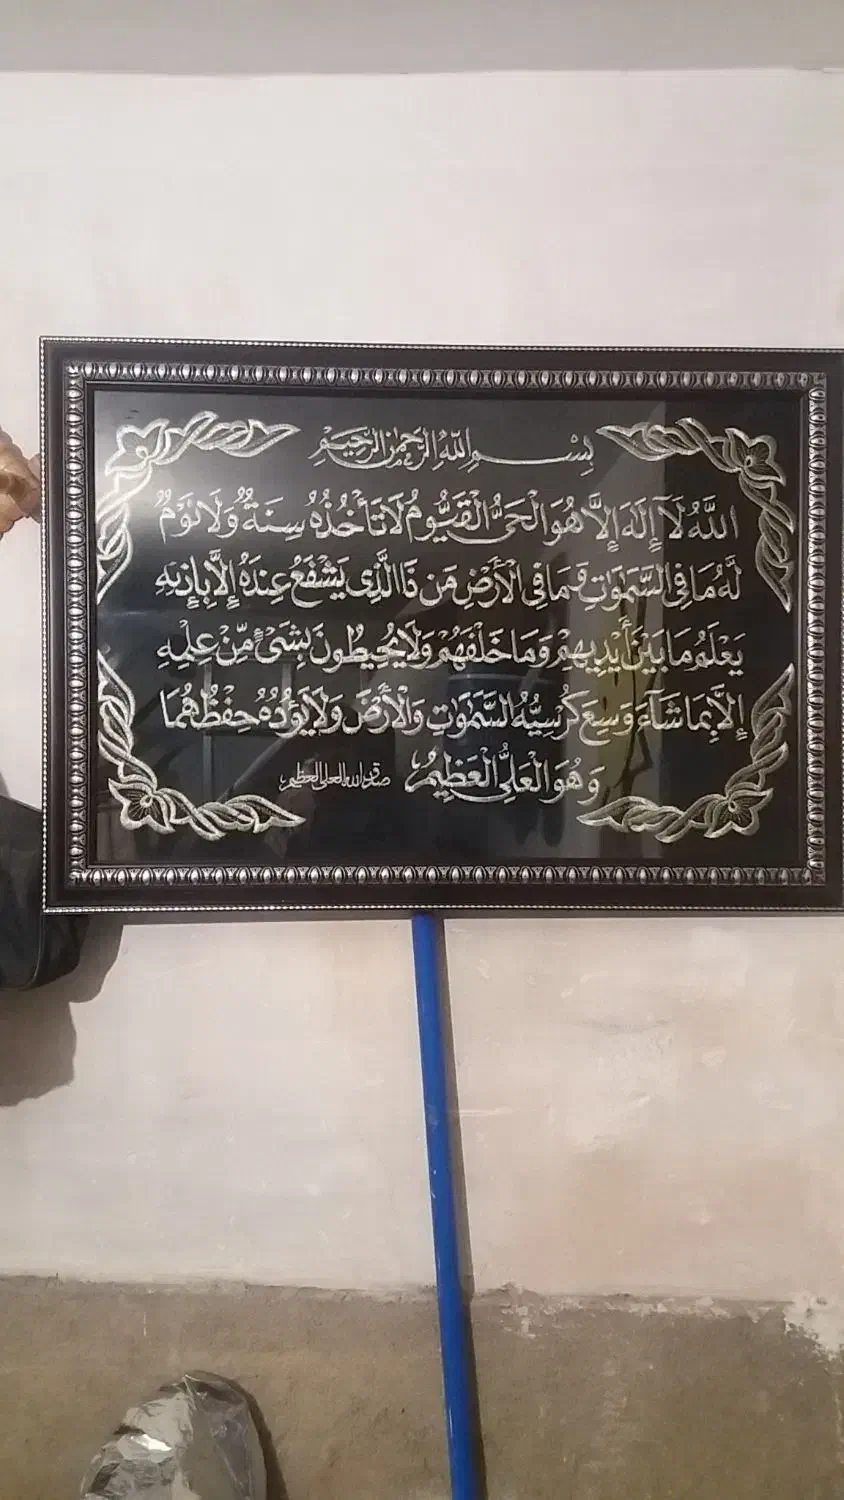 بِسْمِ اللهِ الرَّحْمٰنِ الرَّحِيْمِ
اَللّٰهُ لَآ إِلٰهَ إِلَّا هُوَ الْحَيُّ الْقَيُّومُ لَا تَأْخُذُهُ سِنَةٌ وَلَا نَوْمٌ
لَّهُ مَا فِى السَّمٰوَاتِ وَمَا فِى الْأَرْضِ مَن ذَا الَّذِى يَشْفَعُ عِندَهُ إِلَّا بِإِذْنِهِ
يَعْلَمُ مَا بَيْنَ أَيْدِيهِمْ وَمَا خَلْفَهُمْ وَلَا يُحِيطُونَ بِشَىْءٍ مِّنْ عِلْمِهِ
إِلَّا بِمَا شَآءَ وَسِعَ كُرْسِيُّهُ السَّمٰوَاتِ وَالْأَرْضَ وَلَا يَؤُدُهُ حِفْظُهُمَا
وَهُوَ الْعَلِيُّ الْعَظِيمُ صدق الله العلى العظيم